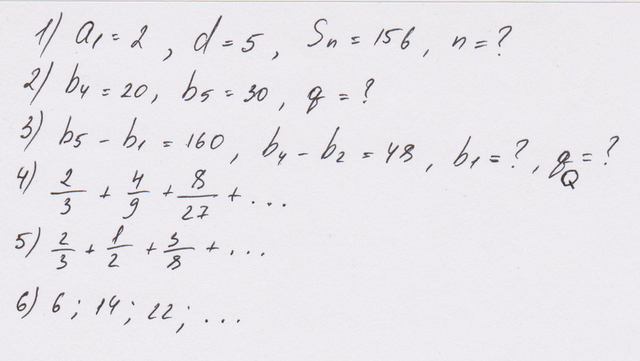 1) a₁ = 2, d = 5, Sn = 156, n = ?
2) b₄ = 20, b₅ = 30, q = ?
3) b₅ - b₁ = 160, b₄ - b₂ = 48, b₁ = ?, q = ? Q
4) 2/3 + 4/9 + 8/27 + ...
5) 2/3 + 1/2 + 3/8 + ...
6) 6; 14; 22; ...